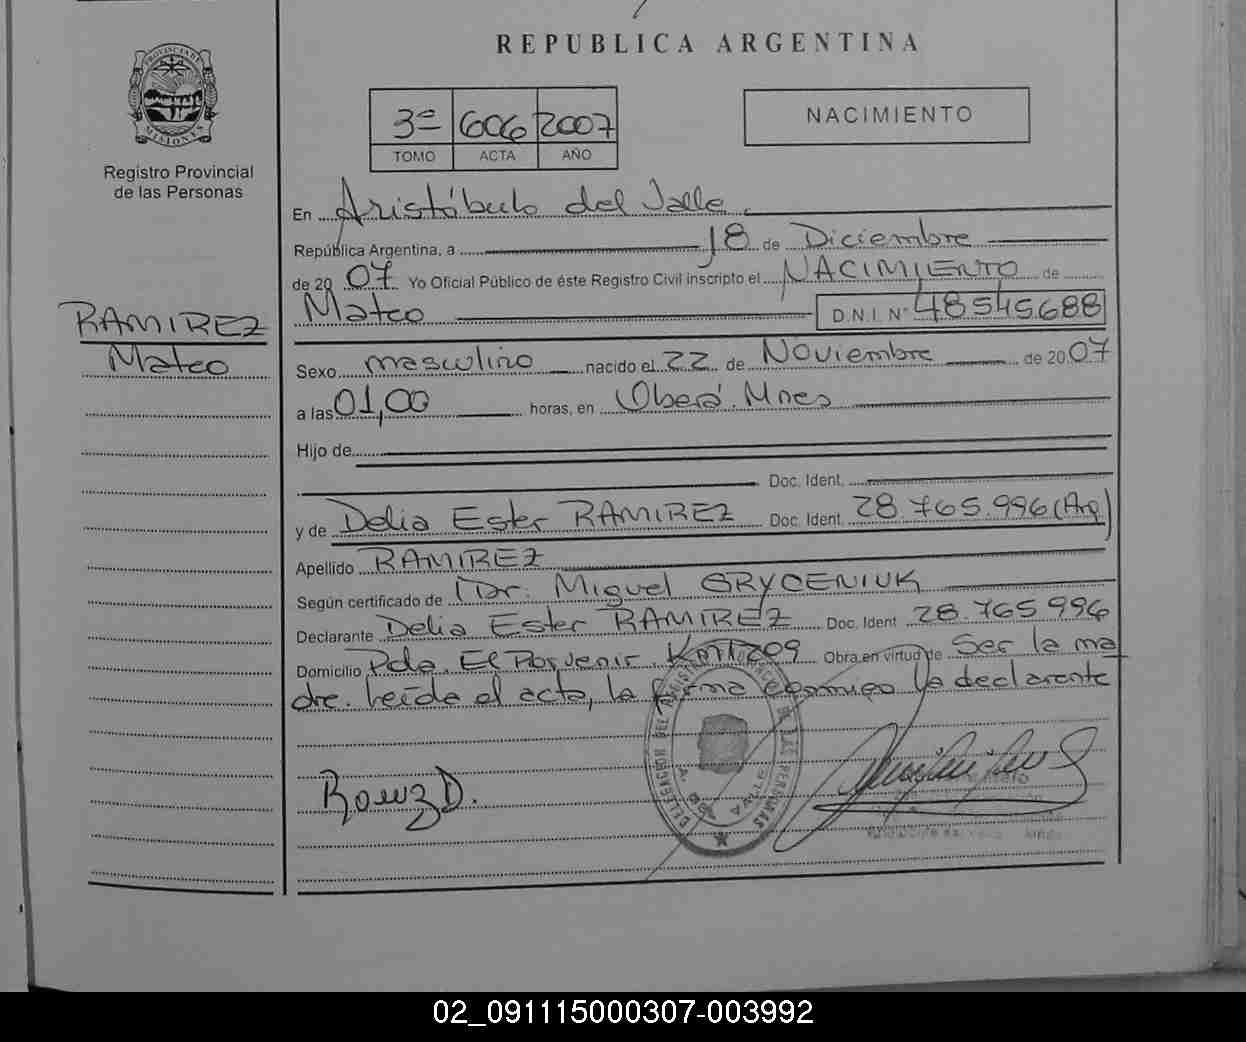 REPUBLICA ARGENTINA
PROVINCIA DE MISIONES
Registro Provincial
de las Personas
3º 606 2007
TOMO ACTA AÑO
NACIMIENTO
En Aristóbulo del Valle.
República Argentina, a 18 de Diciembre
de 20 07 Yo Oficial Público de éste Registro Civil inscripto el NACIMIENTO de
Mateo D.N.I. Nº 48545688
RAMIREZ
Mateo
Sexo masculino nacido el 22 de Noviembre de 20 07
a las 01,00 horas, en Oberá. Mnes
Hijo de
Doc. Ident.
y de Delia Ester RAMIREZ Doc. Ident. 28.765.996 (Arg)
Apellido RAMIREZ
Según certificado de Dr. Miguel GRYCENIUK
Declarante Delia Ester RAMIREZ Doc. Ident 28.765996
Domicilio Pda. El Porvenir. Km 1209 Obra en virtud de Ser la ma
dre. Leída el acta, la firma conmigo la declarante
DELEGACION DEL REGISTRO DE LAS PERSONAS
02_091115000307-003992